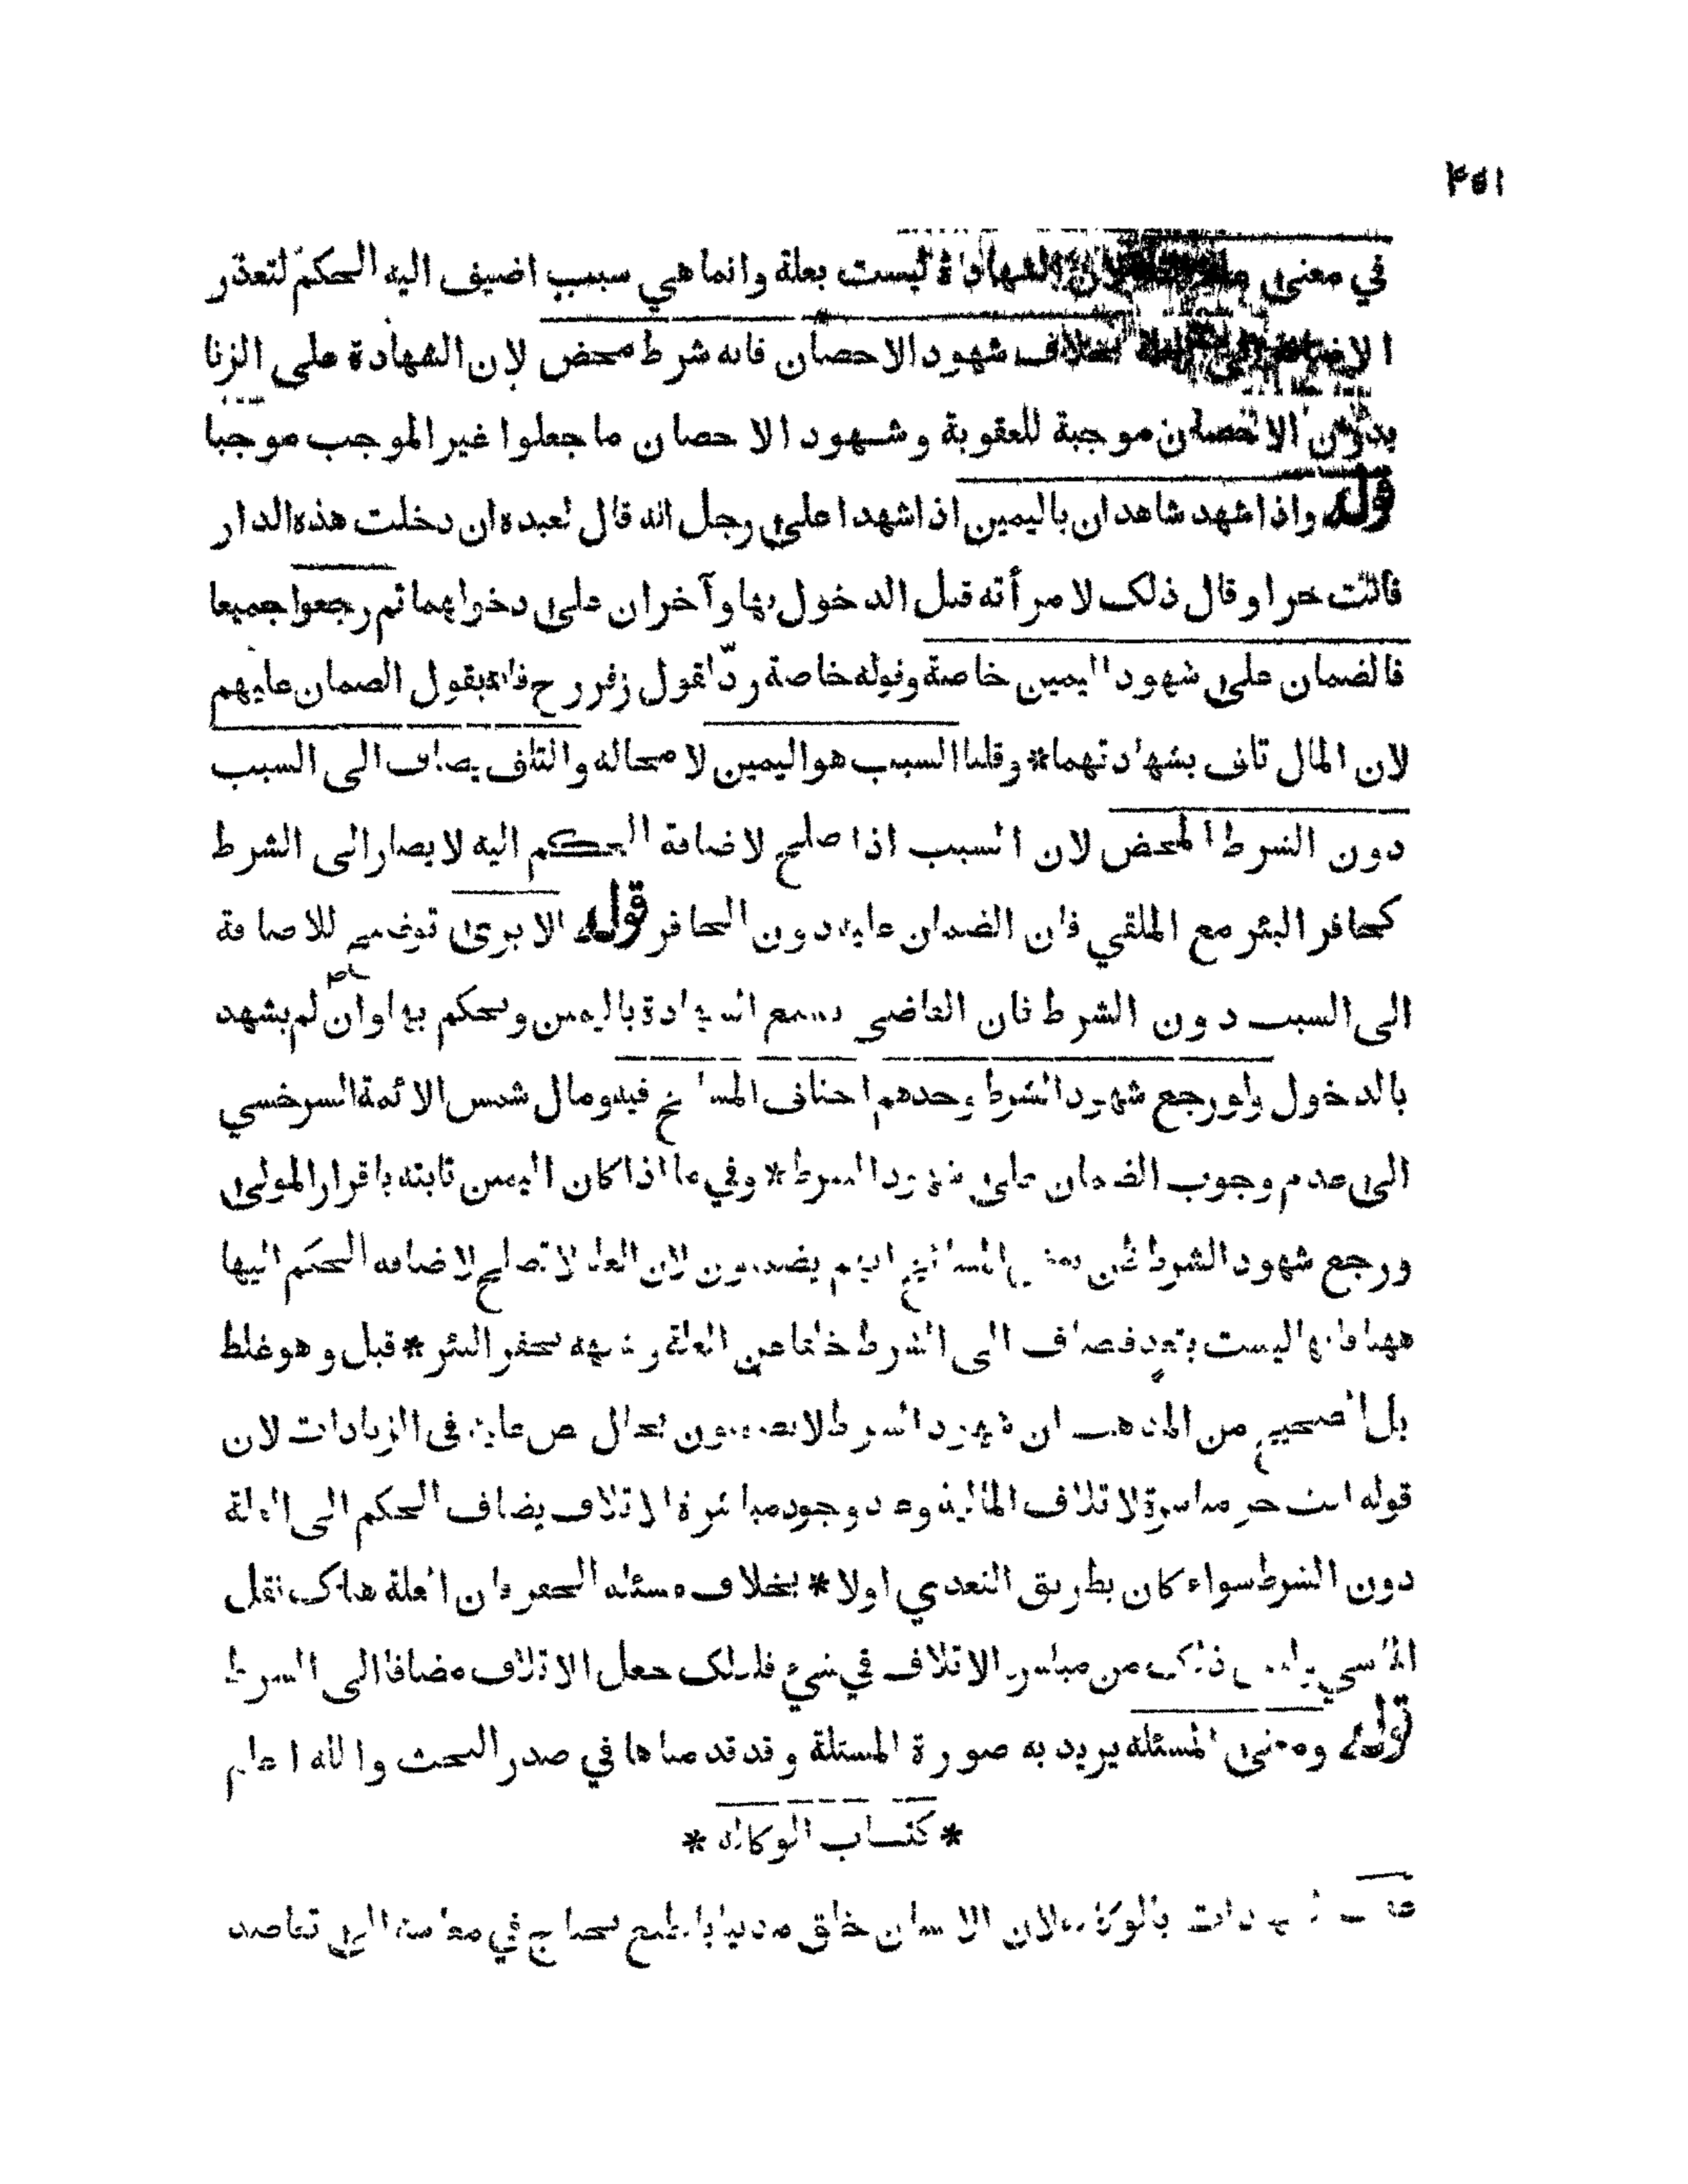 ٤٥١
في معنى الشهادة ليست بعلة وانما هي سبب اضيف اليه الحكم لتعذر
بخلاف شهود الاحصان فانه شرط محض لان الشهادة على الزنا
بدون الاحصان موجبة للعقوبة وشهود الاحصان ما جعلوا غير الموجب موجبا
قوله واذا شهد شاهدان باليمين اذا شهدا على رجل انه قال لعبده ان دخلت هذه الدار
فانت حر او قال ذلك لامرأته قبل الدخول بها وآخران على دخولهما ثم رجعوا جميعا
فالضمان على شهود اليمين خاصة وقوله خاصة رد لقول زفر رح فانه يقول الضمان عليهم
لان المال تلف بشهادتهما * وقلنا السبب هو اليمين لا محالة والتلف يضاف الى السبب
دون الشرط المحض لان السبب اذا صلح لاضافة الحكم اليه لا يصار الى الشرط
كحافر البئر مع الملقي فان الضمان عليه دون الحافر قوله الا يرى توضيح للاضافة
الى السبب دون الشرط فان القاضي يسمع الشهادة باليمين ويحكم بها وان لم يشهد
بالدخول ولو رجع شهود الشرط وحدهم اختلف المشايخ فيه ومال شمس الائمة السرخسي
الى عدم وجوب الضمان على شهود الشرط * وفي ما اذا كان اليمين ثابتة باقرار المولى
ورجع شهود الشرط ظن بعض المشايخ انهم يضمنون لان العلة لا تصلح لاضافة الحكم اليها
ههنا فانها ليست بتعد فيضاف الى الشرط خلفا عن العلة وشبهه بحفر البئر * قيل وهو غلط
بل الصحيح من المذهب ان شهود الشرط لا يضمنون بحال نص عليه في الزيادات لان
قوله انت حر مباشرة لاتلاف المالية وعند وجود مباشرة الاتلاف يضاف الحكم الى العلة
دون الشرط سواء كان بطريق التعدي اولا * بخلاف مسئلة الحفر فان العلة هناك ثقل
الماشي وليس ذلك من مباشرة الاتلاف في شيء فلذلك جعل الاتلاف مضافا الى الشرط
قوله ومعنى المسئلة يريد به صورة المسئلة وقد قدمناها في صدر البحث والله اعلم
* كتاب الوكالة *
بالوكالة لان الانسان خلق مدنيا بالطبع يحتاج في معاشه الى تعاضد